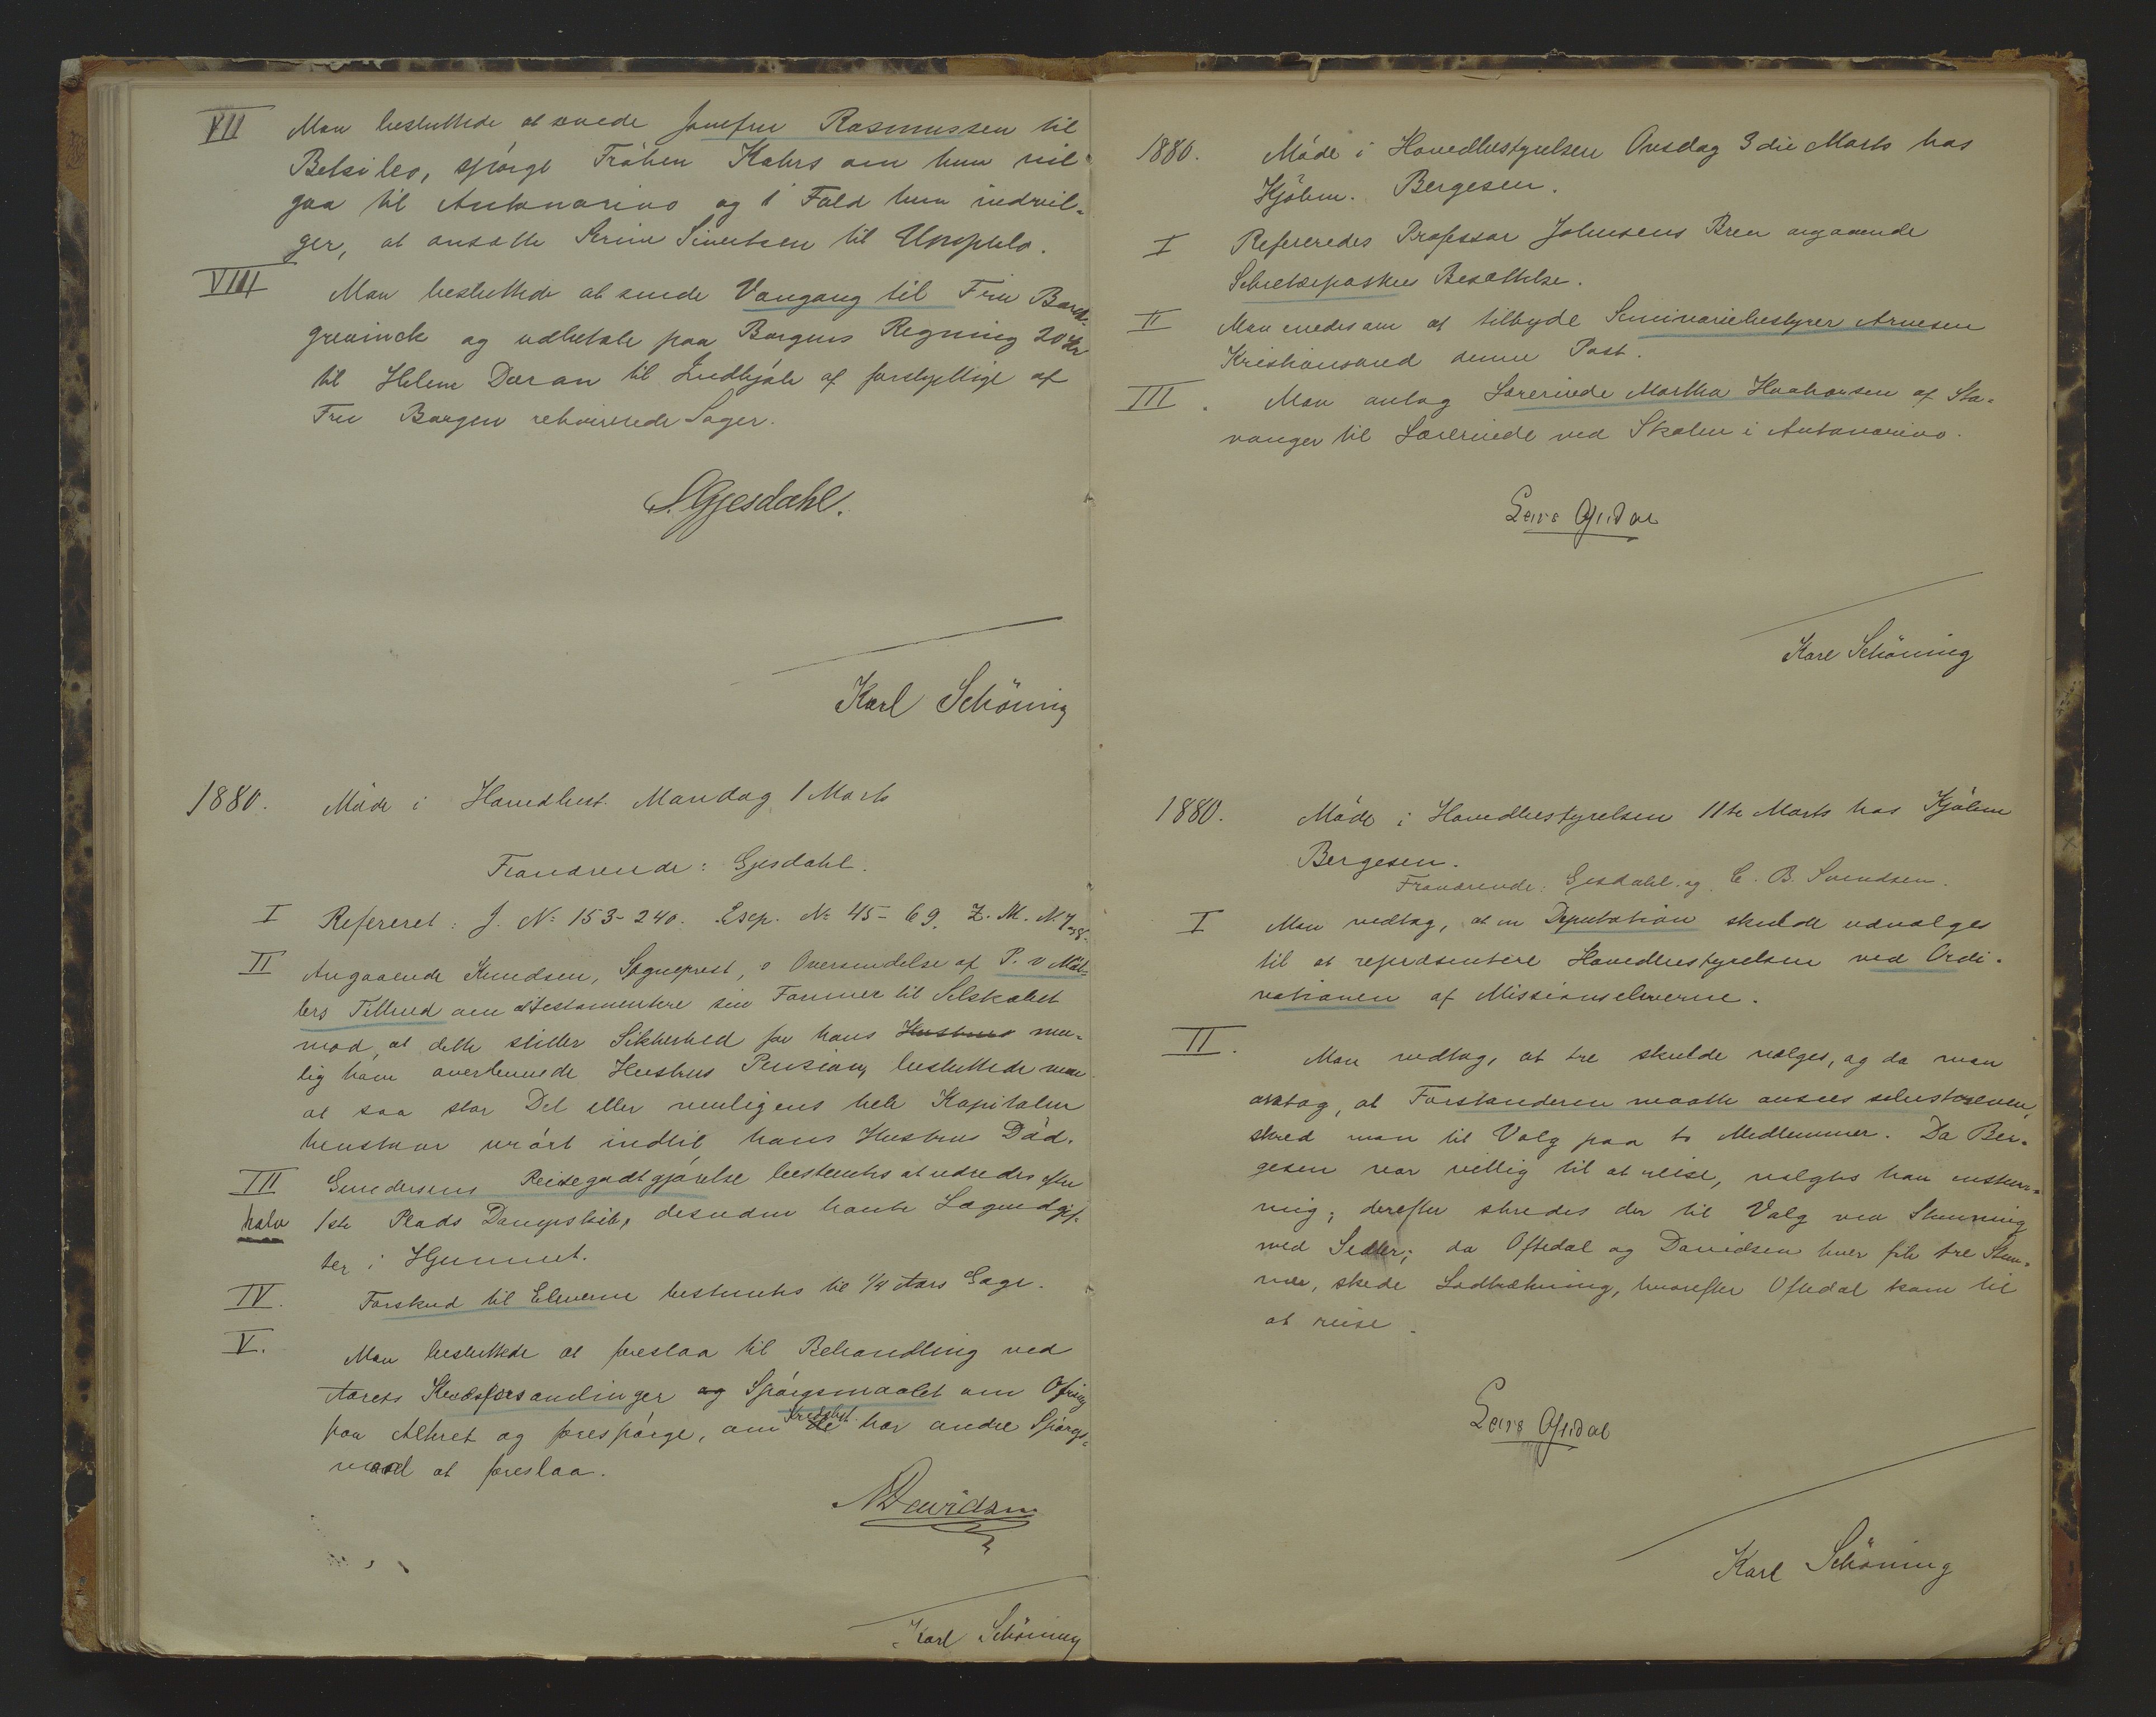 VII Man besluttede at sende Jomfru Rasmussen til
Betsileo, spørge Frøken Kahrs om hun vil
gaa til Antananarivo og i Fald hun indvil-
ger, at ansætte Sivertsen til Umphulo.
VIII Man besluttede at sende Vangang til Fru Borch-
grevinck og udbetale paa Borgens Regning 20 Kr
til Helene Døran til Indkjøb af forskjellige af
Fru Borgen rekvirerede Sager.
S. Gjesdahl.
Karl Schöning
1880. Møde i Hovedbest. Mandag 1 Marts
Fraværende: Gjesdahl.
I Refereret: J. No 153-240. Exp. No 45-69. Z. M. N 7 og 8.
II Angaaende Knudsen, Sogneprest, Oversendelse af P. v Møl-
lers Tilbud om at testamentere sin Formue til Selskabet
mod, at dette stiller Sikkerhed for hans Hustrus mu-
lig ham overlevende Hustrus Pension, besluttede man
at saa stor Del eller muligens hele Kapitalen
henstaar urørt indtil hans Hustrus Død.
III Gundersens Reisegodtgjørelse bestemtes at udredes efter
halv 1ste Plads Dampskib, desuden havte Logeudgif-
ter i Hjemmet.
IV. Forskud til Eleverne bestemtes til 1/4 Aars Gage.
V. Man besluttede at foreslaa til Behandling ved
Aarets Kredsforsamlinger og Spørgsmaalet om Ofring
paa Altret og forespørge, om de Kredsbest. har andre Spørgs-
maal at foreslaa.
N Davidsen
Karl Schöning
1880. Møde i Hovedbestyrelsen Onsdag 3die Marts hos
Kjøbm. Bergesen.
I Refereredes Professor Johnsens Brev angaaende
Sekretærposten Besættelse.
II Man enedes om at tilbyde Seminariebestyrer Arnesen
Kristiansand denne Post.
III. Man antog Lærerinde Martha Haahansen af Sta-
vanger til Lærerinde ved Skolen i Antananarivo.
Lars Oftedal
Karl Schöning
1880. Møde i Hovedbestyrelsen 11te Marts hos Kjøbm
Bergesen.
Fraværende: Gjesdahl og C. B. Svendsen.
I Man vedtog, at en Deputation skulde udvælges
til at repræsentere Hovedbestyrelsen ved Ordi-
nationen af Missionseleverne.
II. Man vedtog, at tre skulde vælges, og da man
antog, at Forstanderen maatte ansees selvskreven,
skred man til Valg paa to Medlemmer. Da Ber-
gesen var villig til at reise, valgtes han enstem-
mig; derefter skredes der til Valg ved Stemning
med Sedler; da Oftedal og Davidsen hver fik tre Stem-
mer, skede Lodtrækning, hvorefter Oftedal kom til
at reise.
Lars Oftedal
Karl Schöning